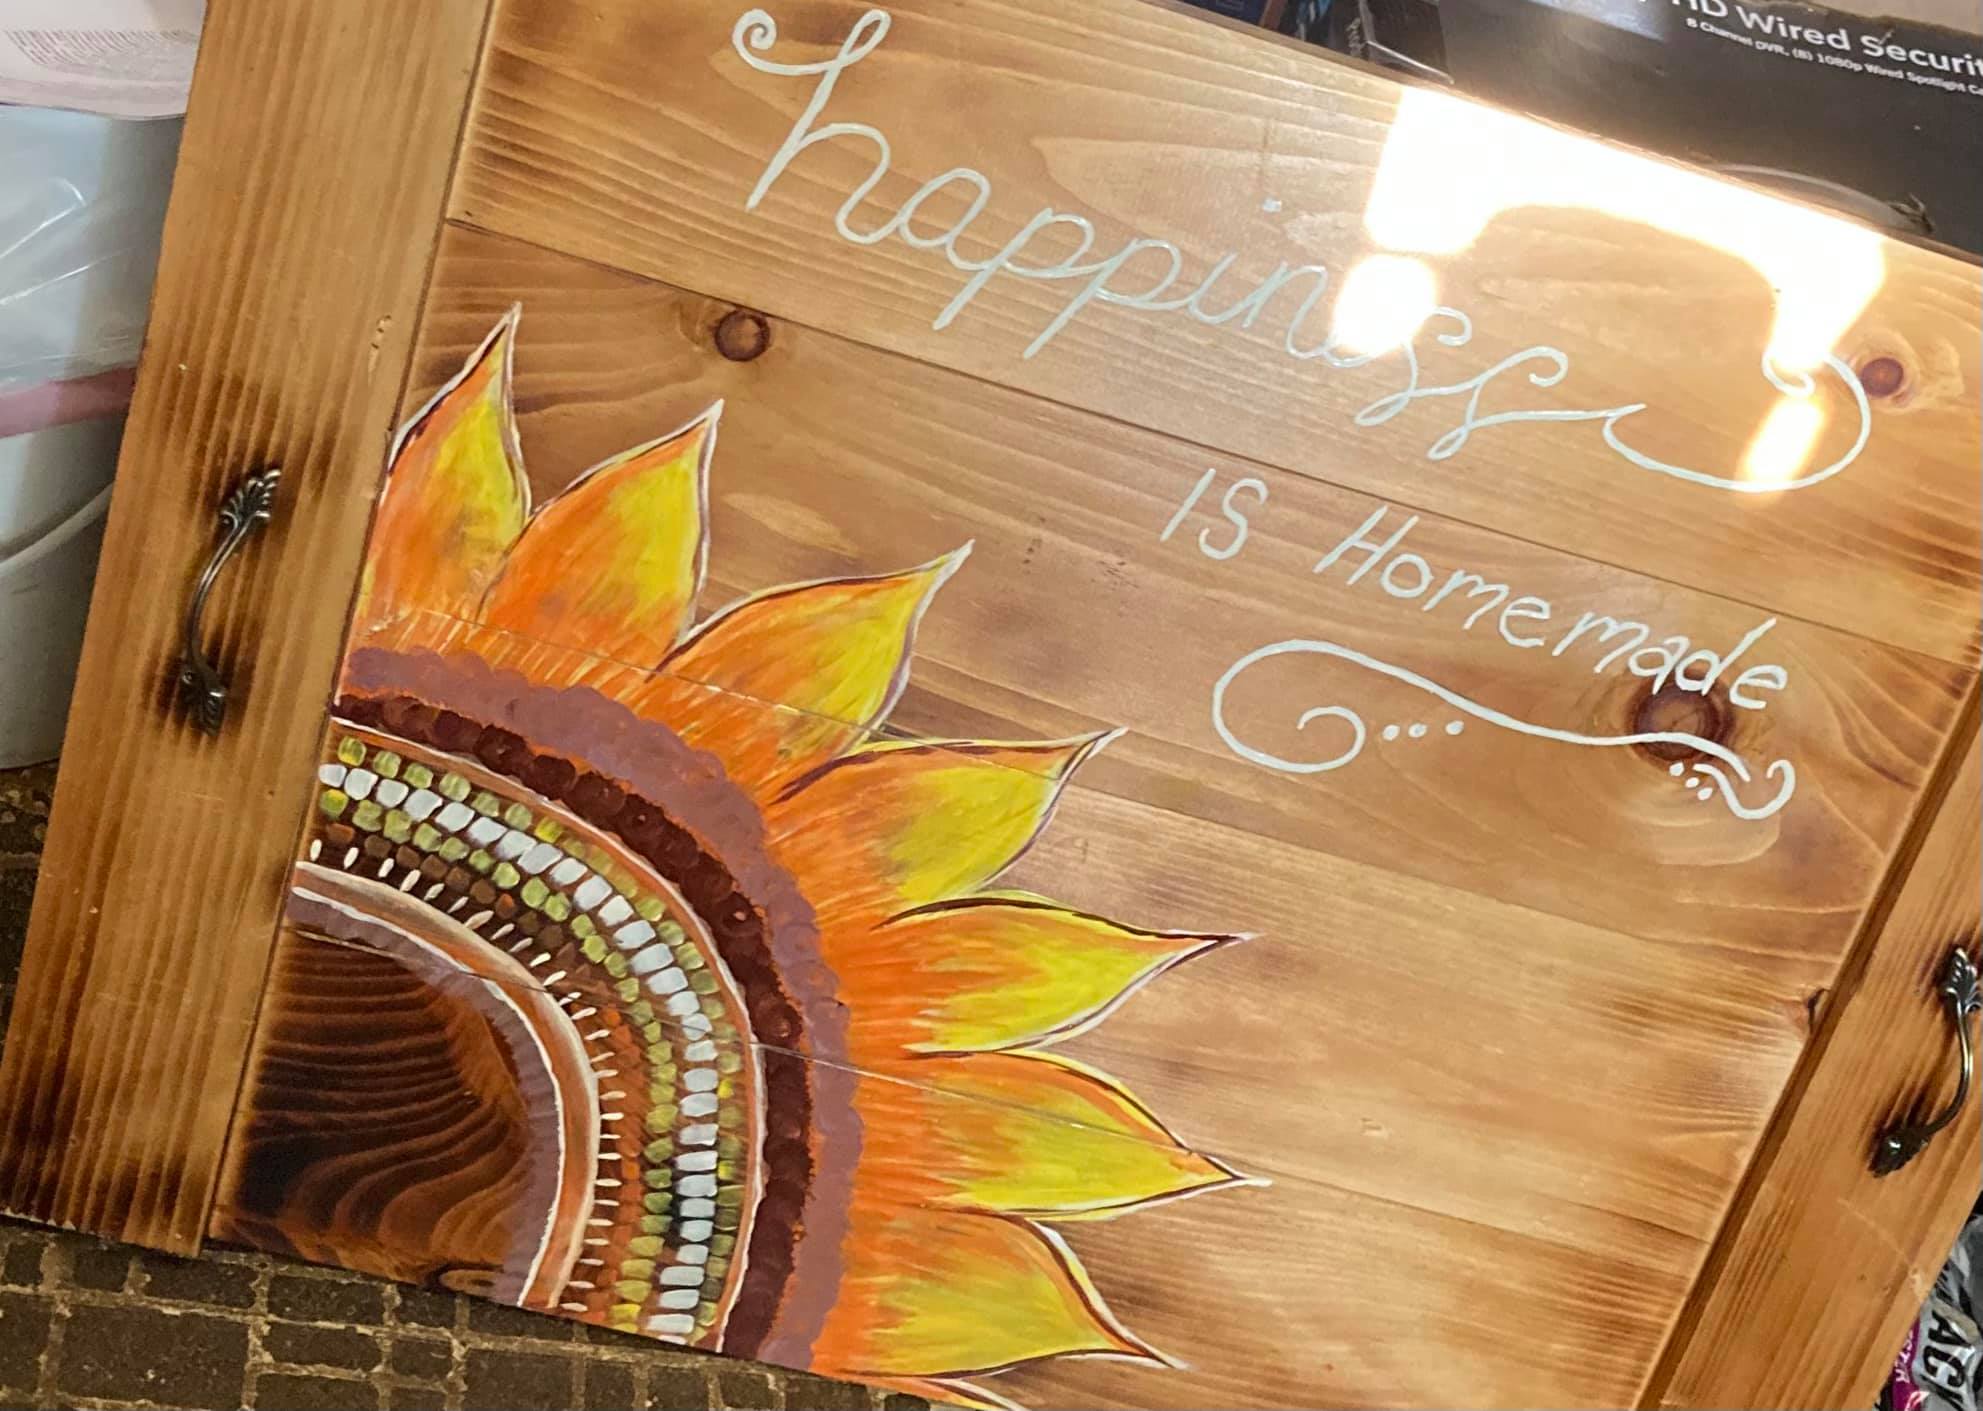 happiness
IS Homemade
HD Wired Securit
8 Channel DVR, (8) 1080p Wired Spotlight Ca